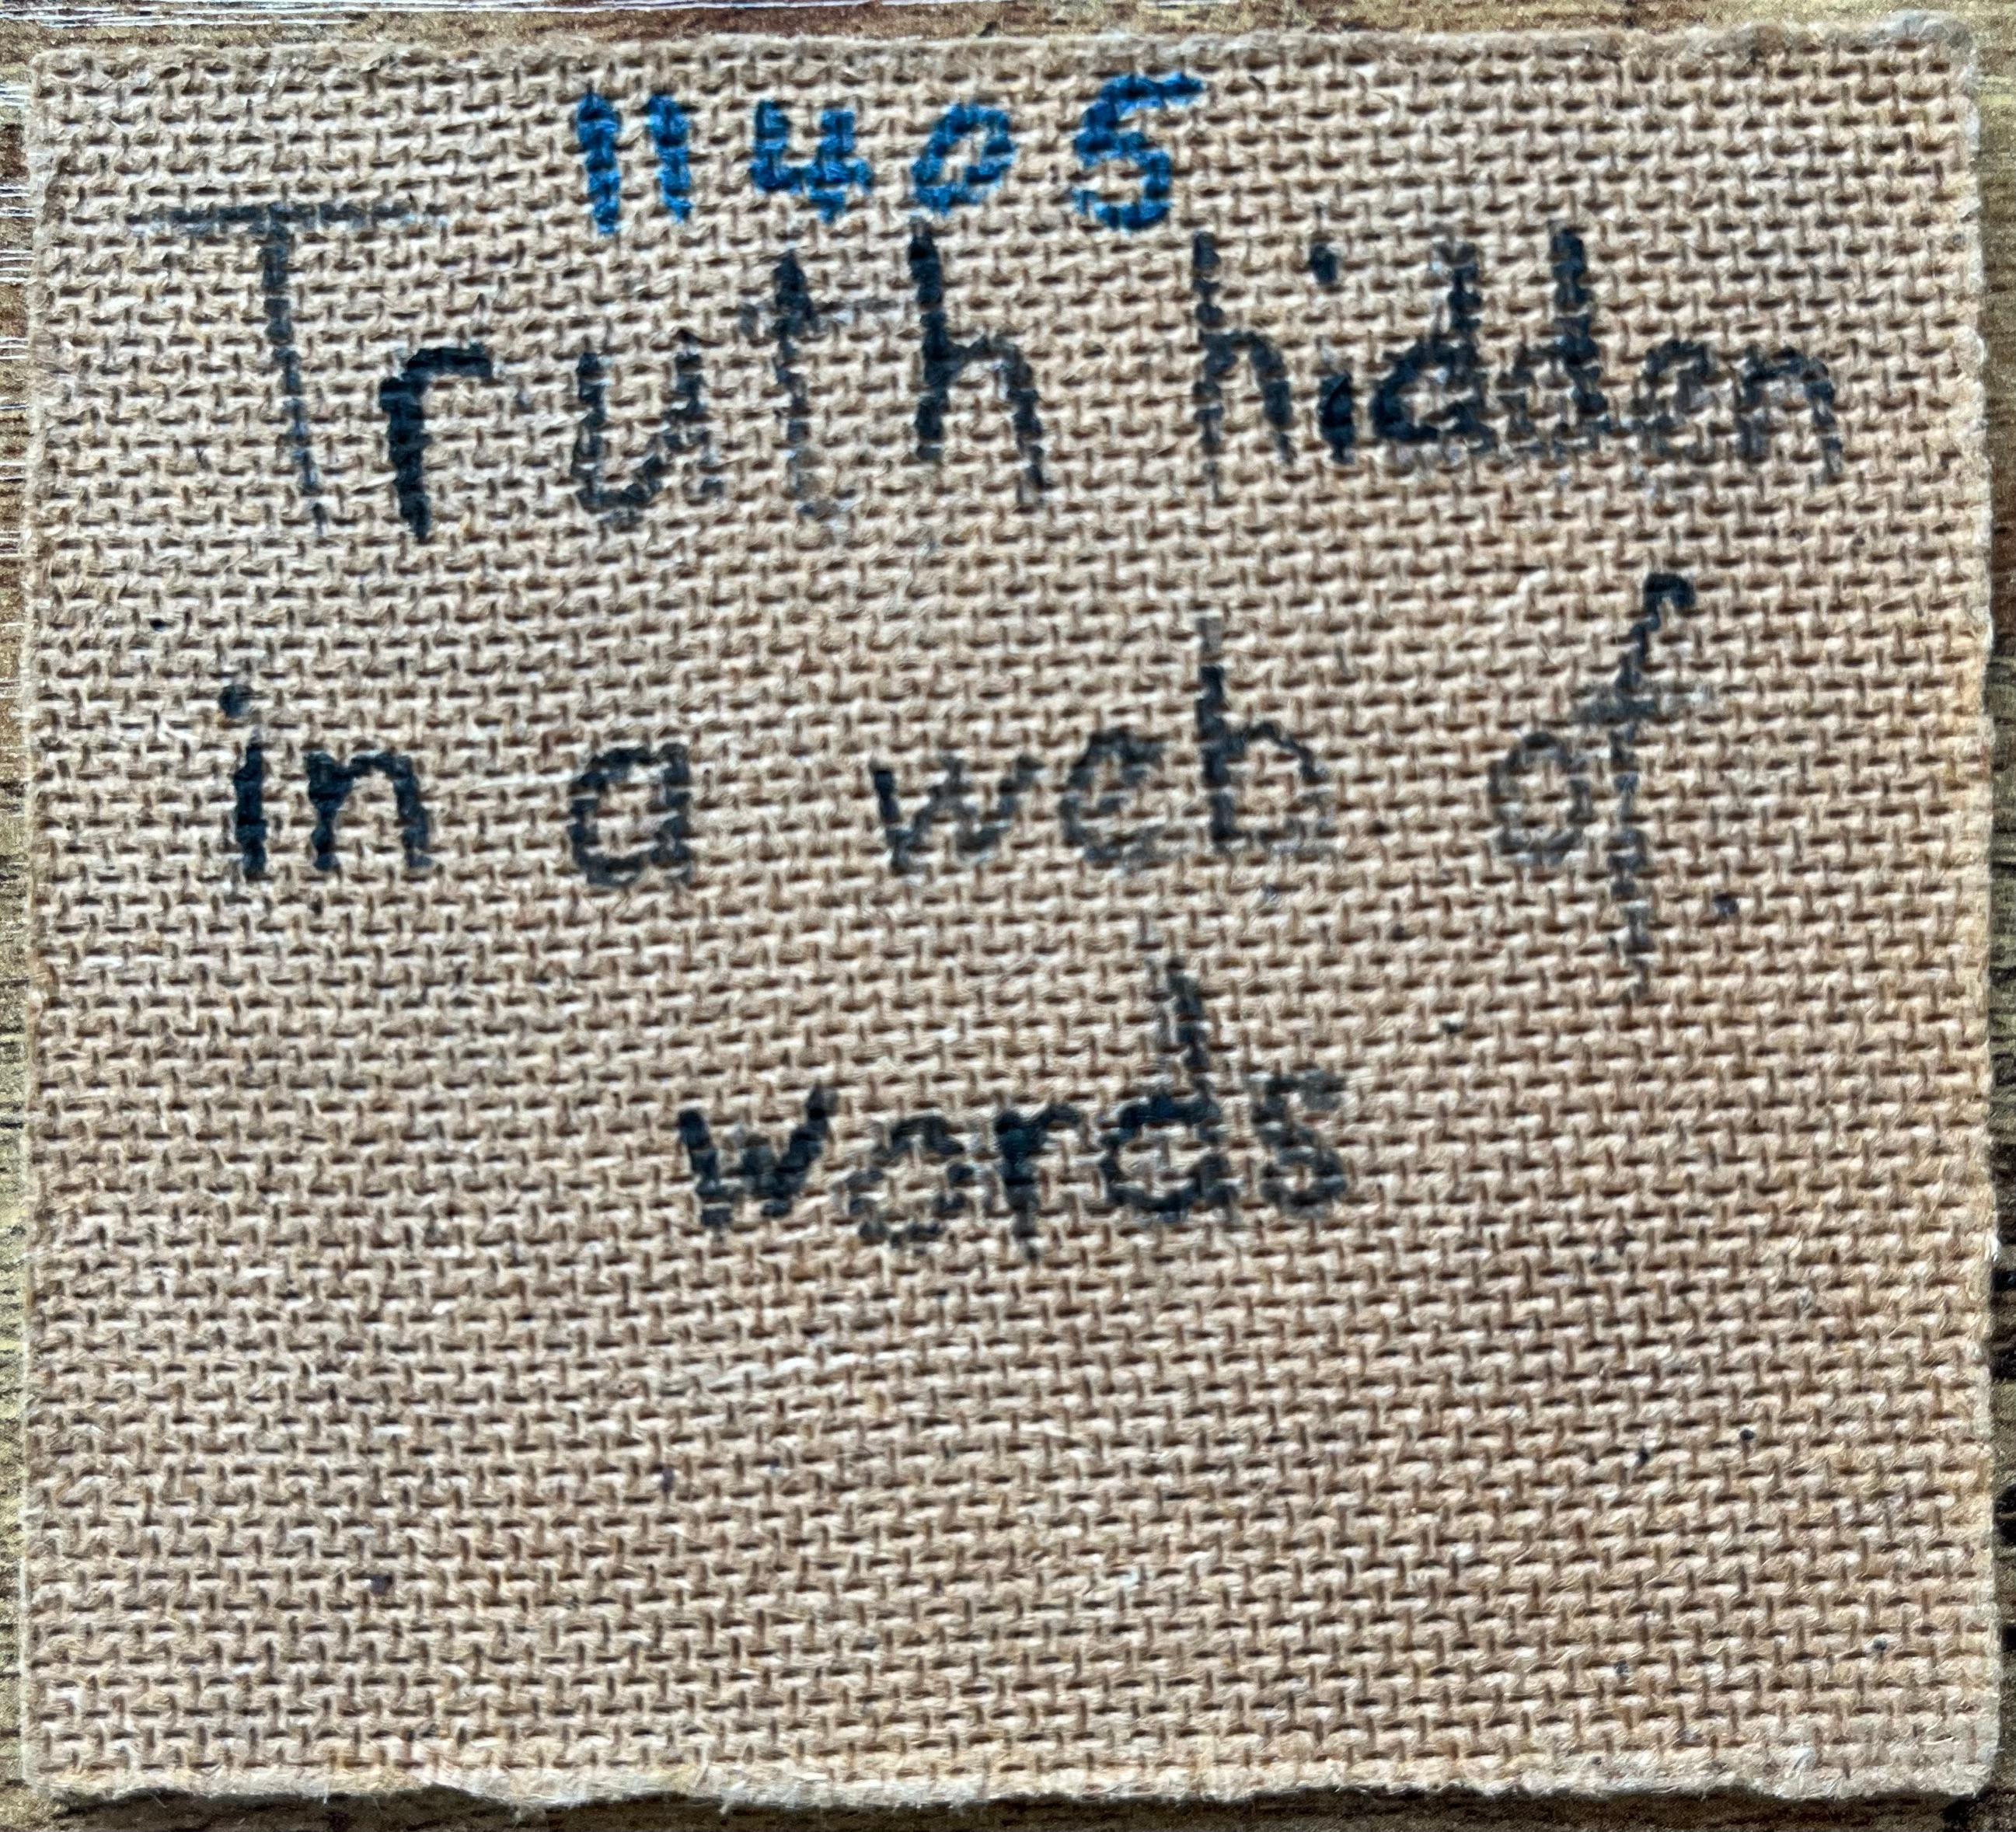 11405
Truth hidden
in a web of
words